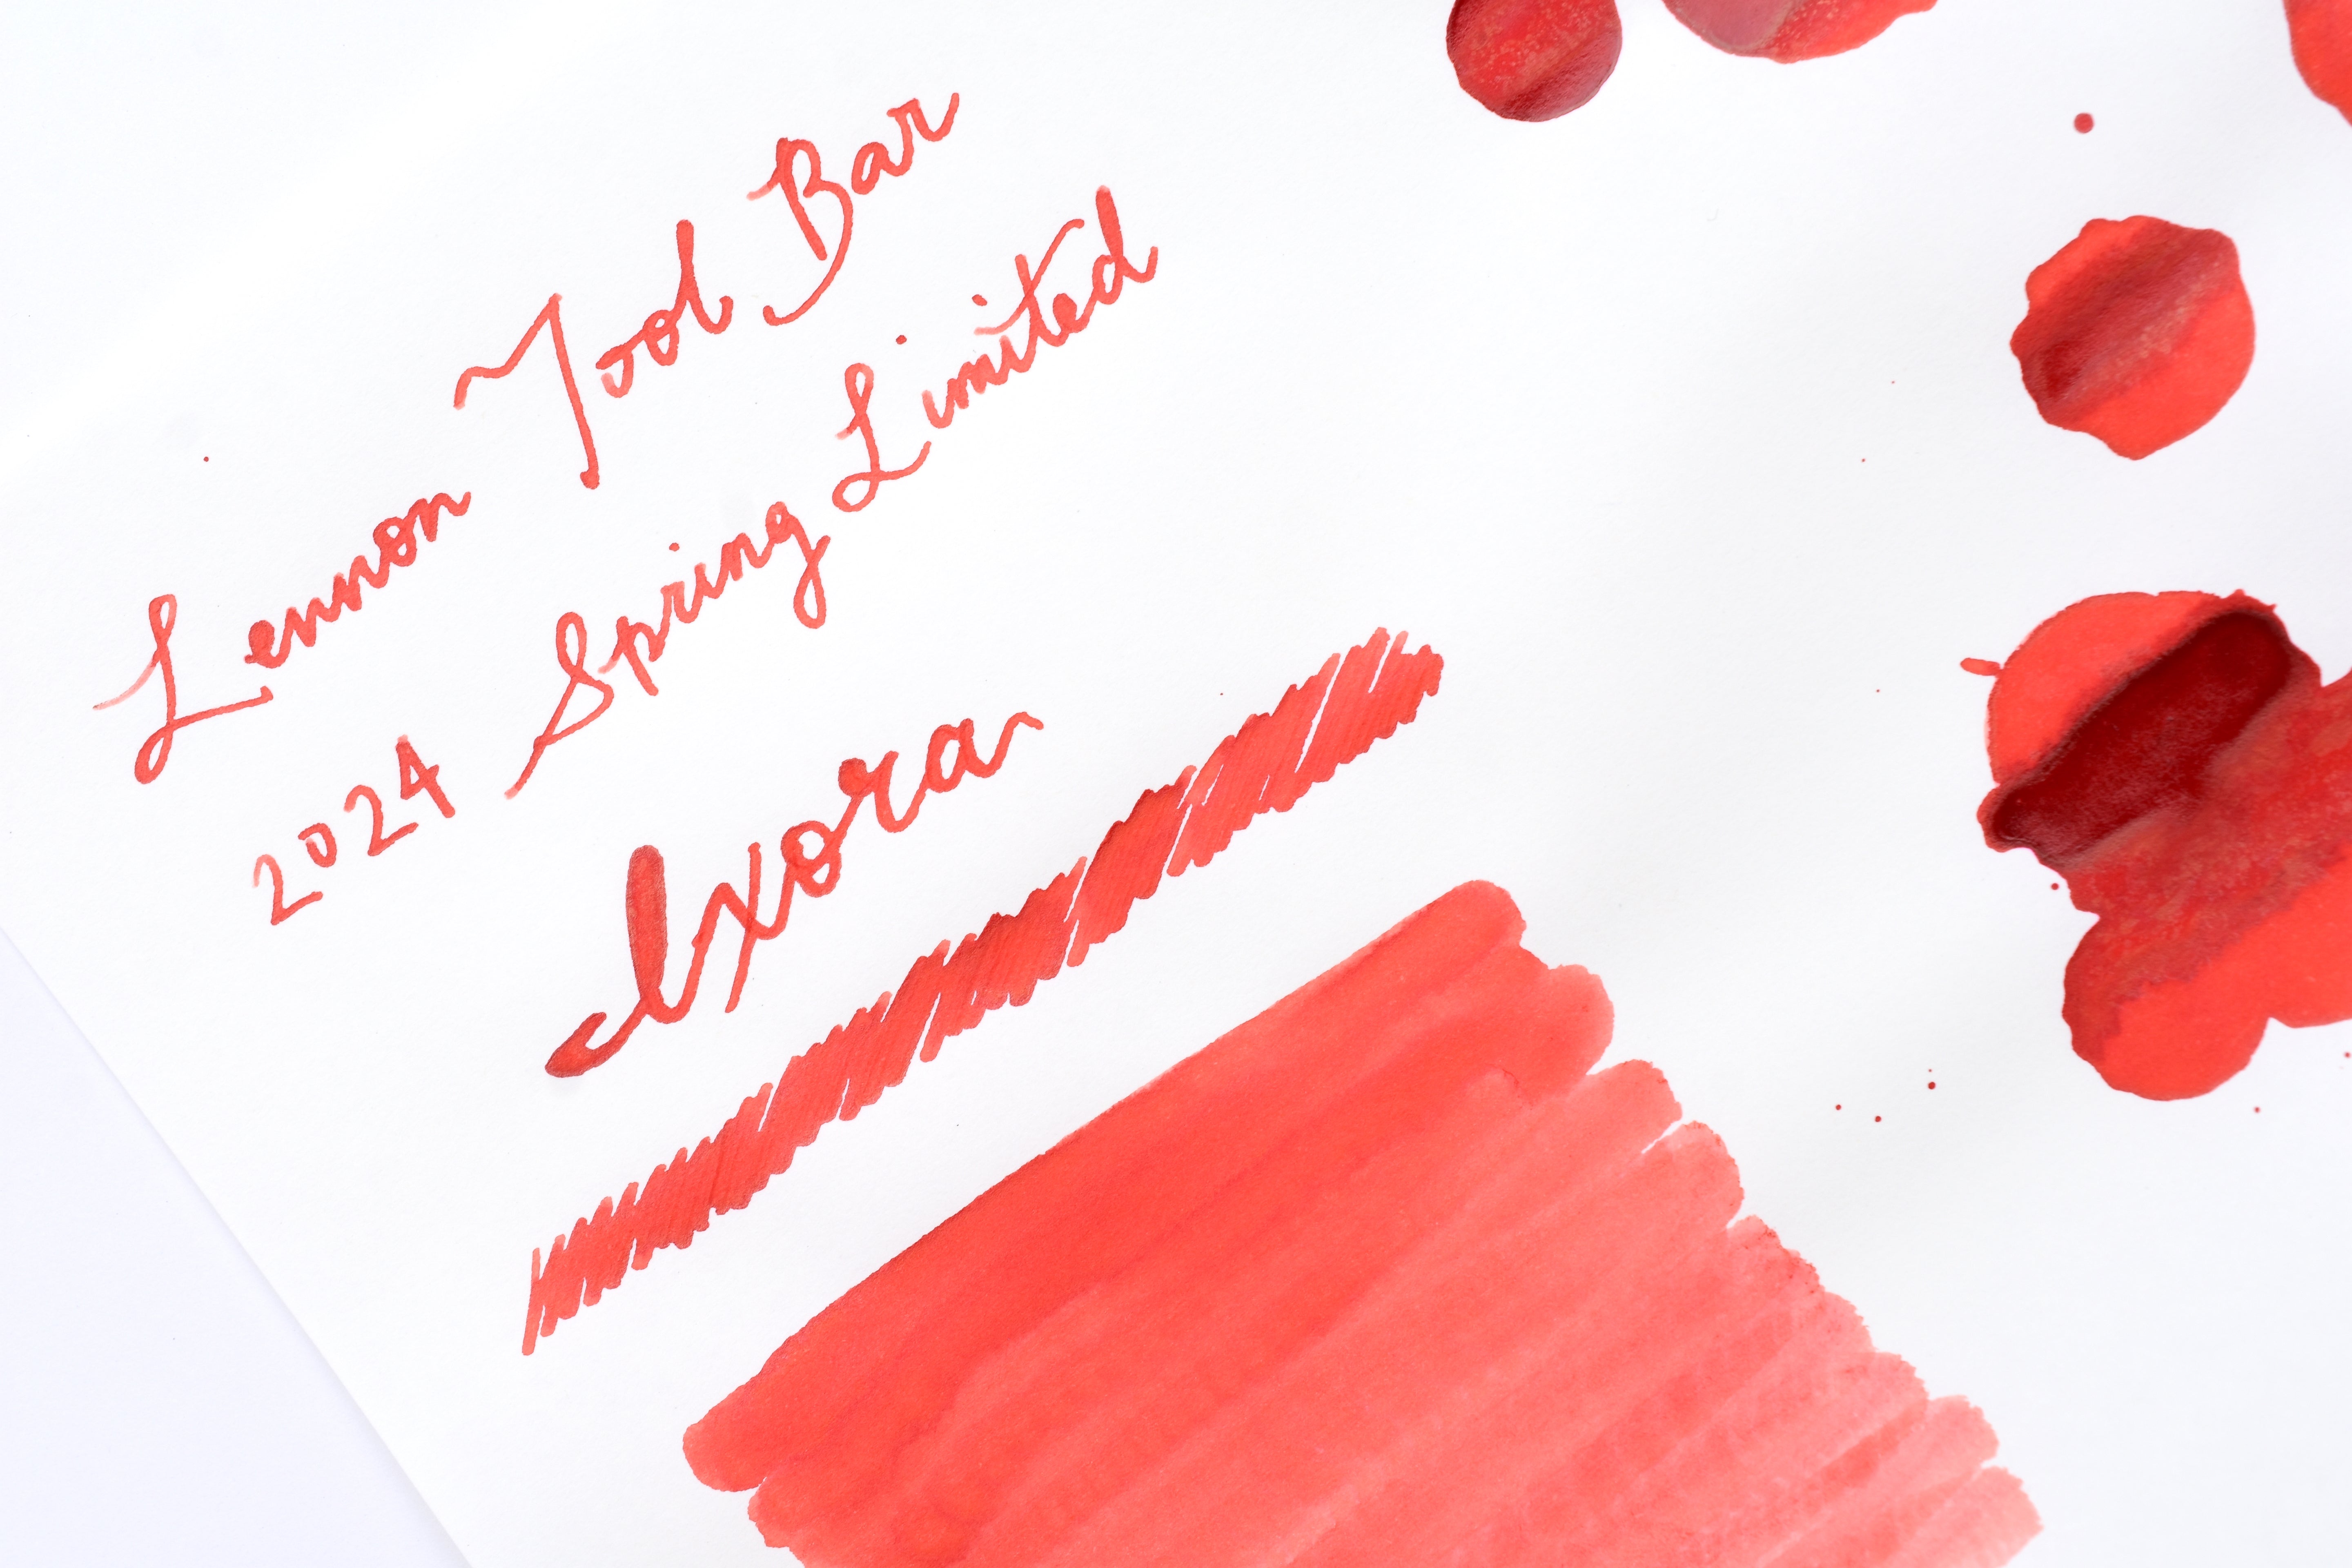 Lennon Tool Bar
2024 Spring Limited
Ixora